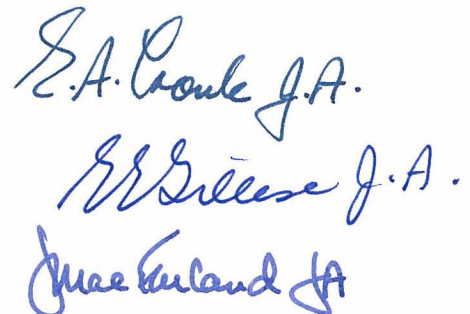 E.A. Cronk J.A.
EEGillese J.A.
JMacFarland JA